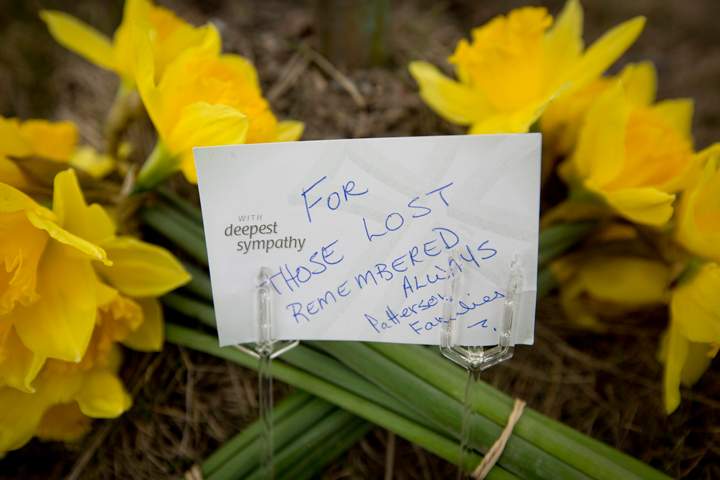 WITH
deepest
sympathy
FOR
THOSE LOST
REMEMBERED
ALWAYS
Patterson
Families